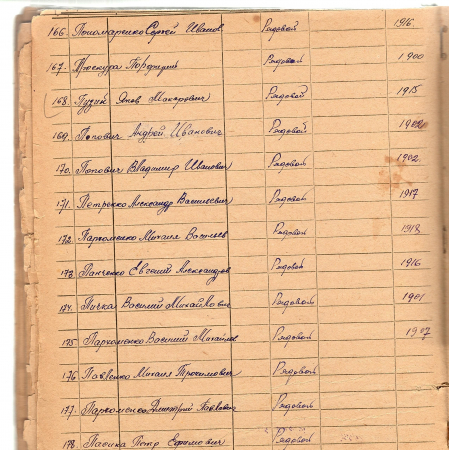 166. Пономаренко Сергей Иванов. Рядовой 1916
167. Порфирий Рядовой 1900
168. Пузик Яков Макарович Рядовой 1915
169. Попович Андрей Иванович Рядовой 1902
170. Попович Владимир Иванович Рядовой 1902
171. Петренко Александр Васильевич Рядовой 1917
172. Пархоменко Михаил Васильев Рядовой 1918
173. Панченко Евгений Александров Рядовой 1916
174. Василий Михайлович Рядовой 1901
175 Пархоменко Василий Михайлов Рядовой 1907
176 Павленко Михаил Трофимович Рядовой
177. Пархоменко Дмитрий Павлович Рядовой
178. Пасика Петр Ефимович Рядовой